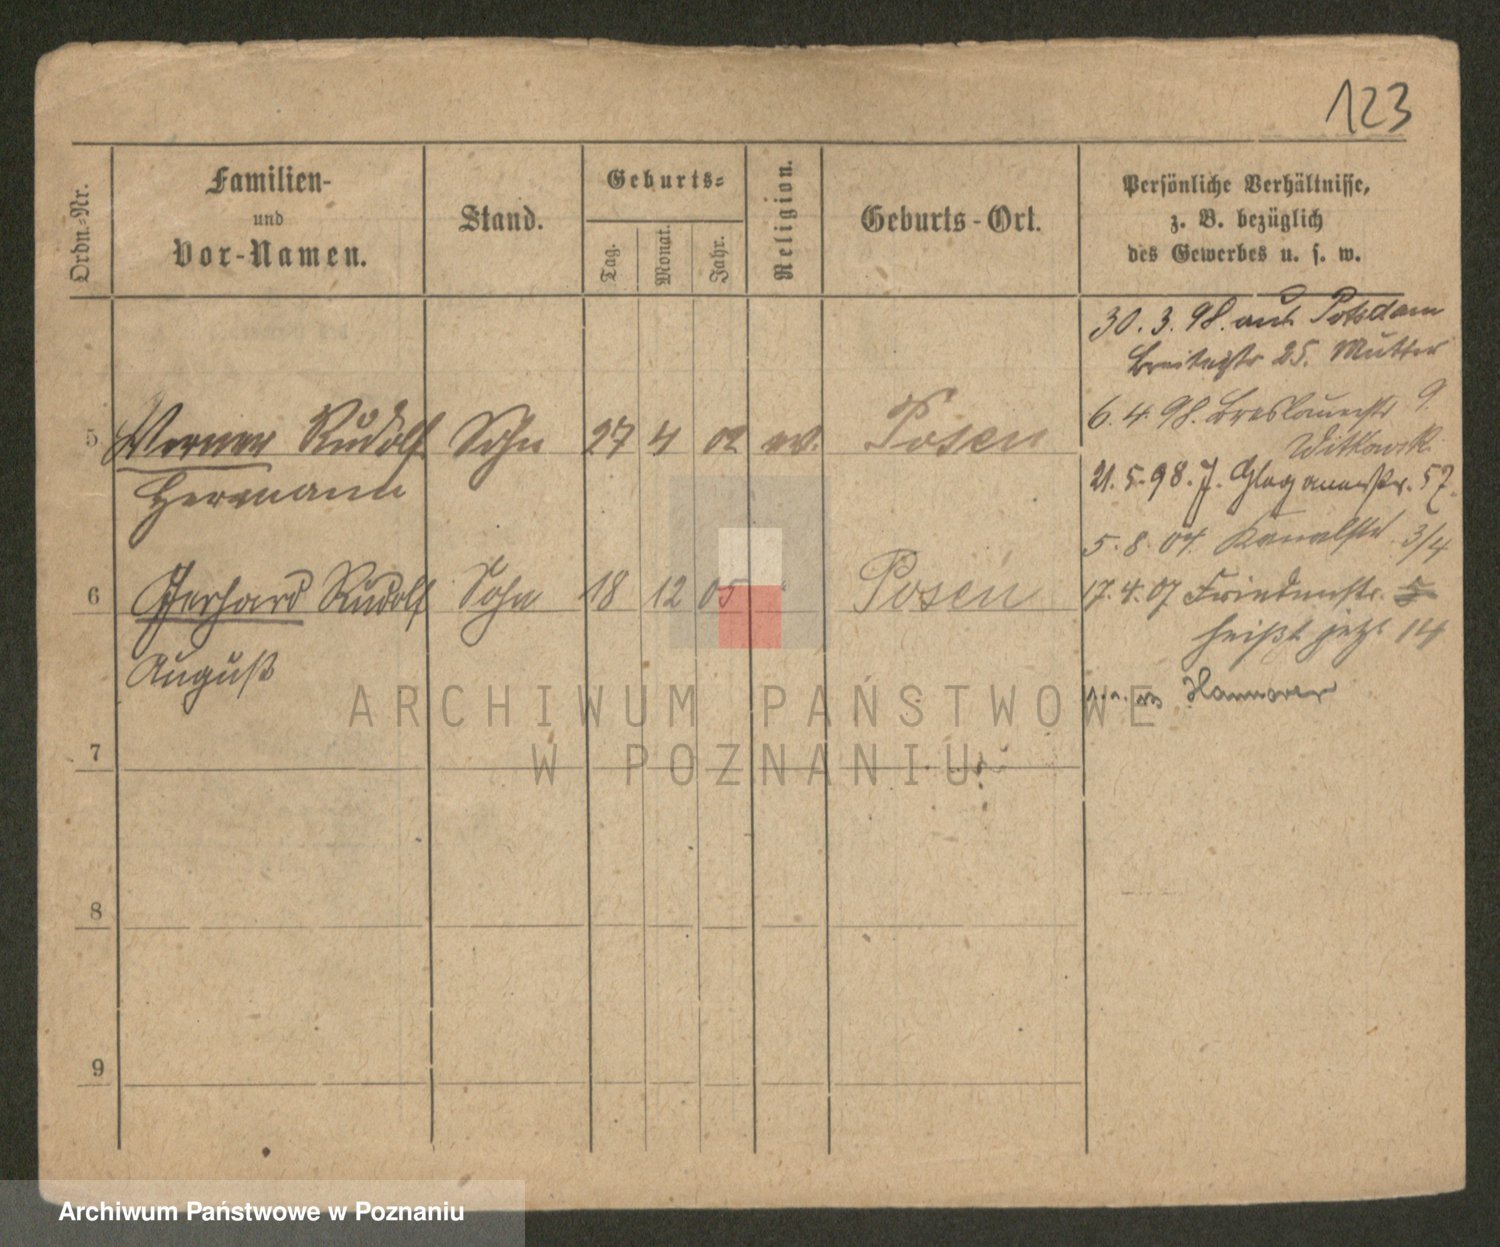 123
Ordn.-Nr.
Familien-
und
Vor-Namen.
Stand.
Geburts-
Tag.
Monat.
Jahr.
Religion.
Geburts-Ort.
Persönliche Verhältnisse,
z. B. bezüglich
des Gewerbes u. s. w.
30. 3. 98. aus Potsdam
Breitestr 25. Mutter
6. 4. 98. Breslauerstr 9.
Witkowsk.
5 Werner Rudolf Sohn 27 4 02 ev. Posen
Hermann
21. 5. 98. J. Glogauerstr. 57.
5. 8. 04. Kanalstr. 3/4
6 Gerhard Rudolf Sohn 18 12 05 " Posen
August
17. 4. 07 Friedenstr. 5
heißt jetzt 14
Hannover
7
8
9
ARCHIWUM PAŃSTWOWE
W POZNANIU
Archiwum Państwowe w Poznaniu